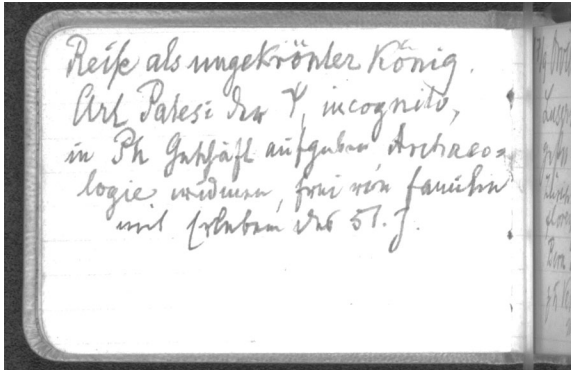 Reise als ungekrönter König.
Art Patesi der Ψ, incognito,
in Ph Geschäft aufgeben Archaeo=
logie widmen, frei von Familie
mit Erleben des 51. J.